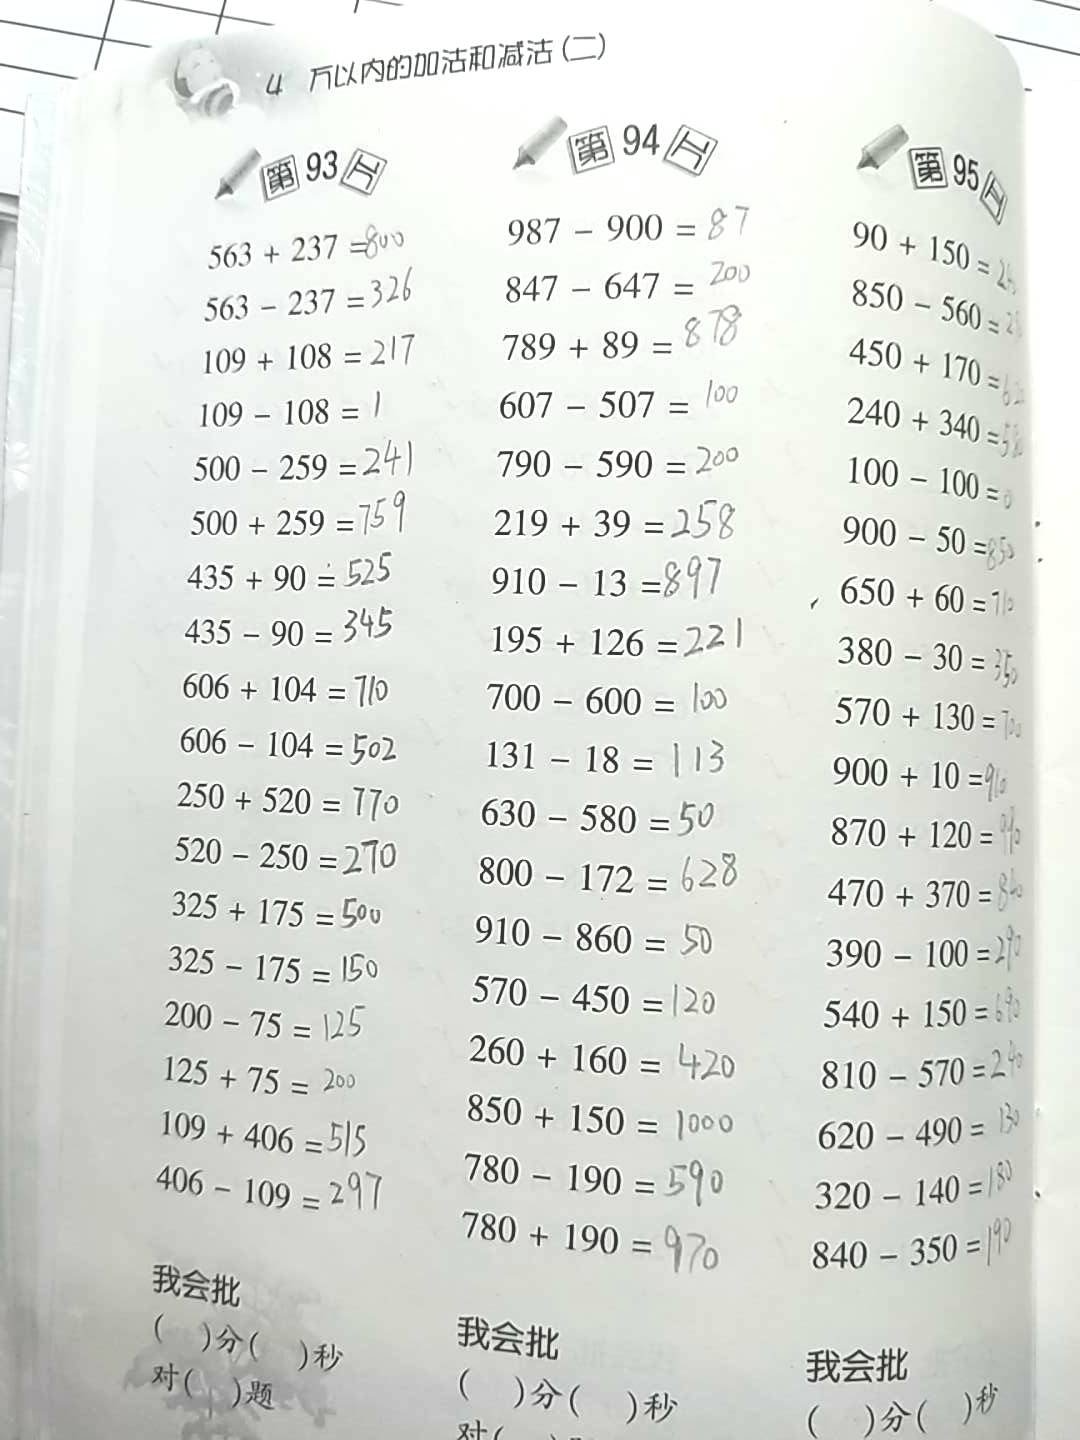 4 万以内的加法和减法(二)
第93工
563 + 237 =800
563 - 237 =326
109 + 108 =217
109 - 108 =1
500 - 259 =241
500 + 259 =759
435 + 90 =525
435 - 90 =345
606 + 104 =710
606 - 104 =502
250 + 520 =770
520 - 250 =270
325 + 175 =500
325 - 175 =150
200 - 75 =125
125 + 75 =200
109 + 406 =515
406 - 109 =297
我会批
( )分( )秒
对( )题
第94工
987 - 900 =87
847 - 647 =200
789 + 89 =878
607 - 507 =100
790 - 590 =200
219 + 39 =258
910 - 13 =897
195 + 126 =221
700 - 600 =100
131 - 18 =113
630 - 580 =50
800 - 172 =628
910 - 860 =50
570 - 450 =120
260 + 160 =420
850 + 150 =1000
780 - 190 =590
780 + 190 =970
我会批
( )分( )秒
对(
第95工
90 + 150 =
850 - 560 =
450 + 170 =620
240 + 340 =580
100 - 100 =0
900 - 50 =850
650 + 60 =710
380 - 30 =350
570 + 130 =700
900 + 10 =910
870 + 120 =990
470 + 370 =840
390 - 100 =290
540 + 150 =690
810 - 570 =240
620 - 490 =130
320 - 140 =180
840 - 350 =190
我会批
( )分( )秒